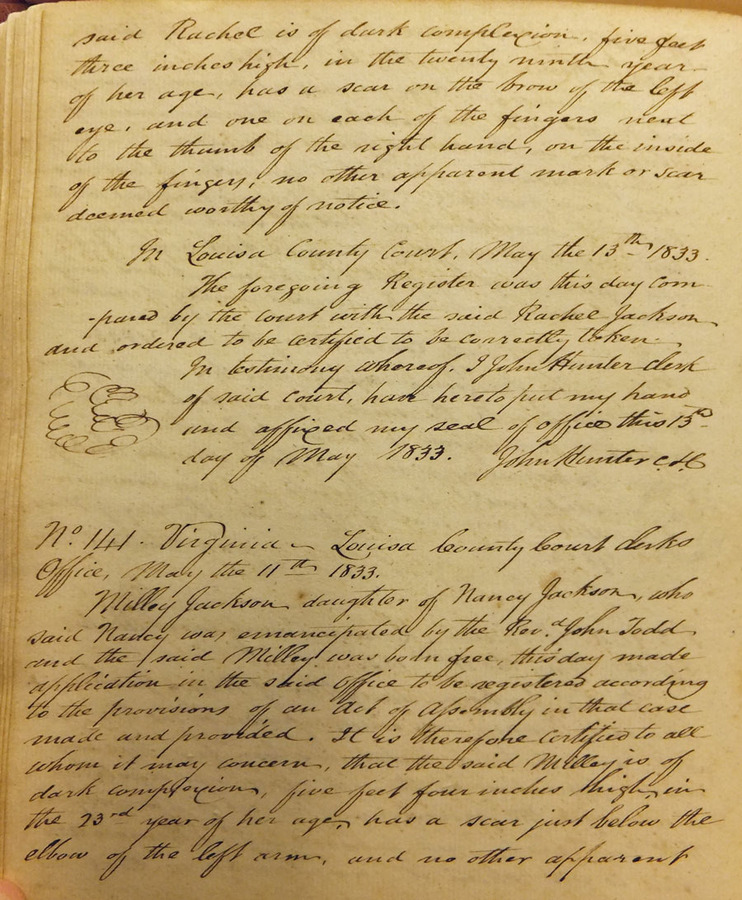 said Rachel is of dark complexion, five feet
three inches high, in the twenty ninth year
of her age, has a scar on the brow of the left
eye, and one on each of the fingers next
to the thumb of the right hand, on the inside
of the fingers, no other apparent mark or scar
deemed worthy of notice.
In Louisa County Court, May the 13th 1833.
The foregoing Register was this day com
-pared by the court with the said Rachel Jackson
and ordered to be certified to be correctly taken.
In testimony whereof, I John Hunter clerk
of said court, have hereto put my hand
and affixed my seal of office this 13th
day of May 1833. John Hunter C.L.C
No. 141. Virginia - Louisa County Court Clerks
Office, May the 11th 1833.
Milley Jackson daughter of Nancy Jackson, who
said Nancy was emancipated by the Revd. John Todd
and the said Milley was born free, this day made
application in the said Office to be registered according
to the provisions of an Act of Assembly in that case
made and provided. It is therefore certified to all
whom it may concern, that the said Milley is of
dark complexion, five feet four inches high, in
the 23rd year of her age, has a scar just below the
elbow of the left arm, and no other apparent